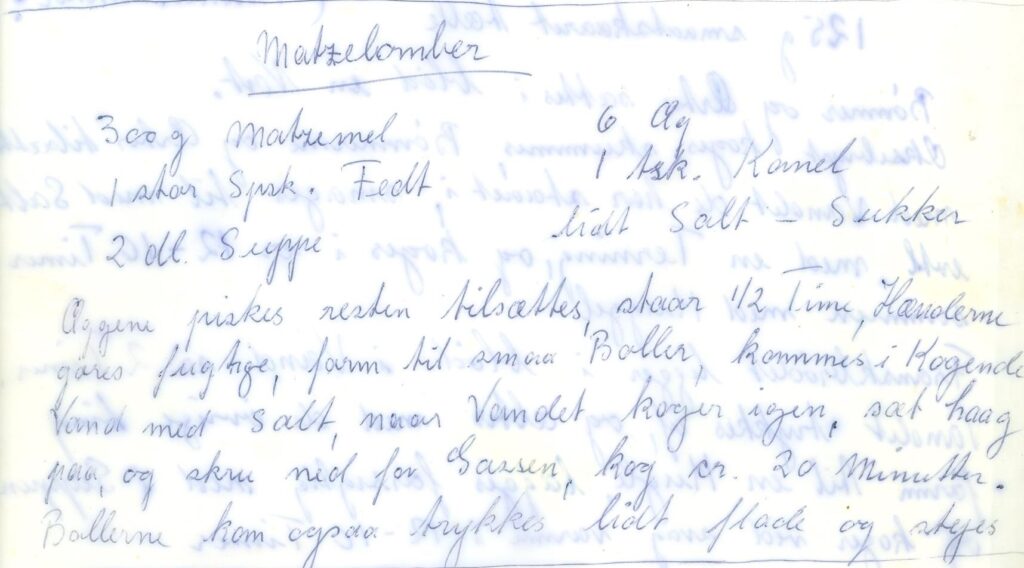 Matzebomber
300g Matzemel 6 Æg
1 stor Spsk. Fedt 1 tsk. Kanel
2 dl. Suppe lidt Salt - Sukker
Æggene piskes resten tilsættes, staar 1/2 Time, Hænderne
gøres fugtige, form til smaa Boller, kommes i Kogende
Vand med Salt, naar Vandet koger igen, sæt laag
paa, og skru ned for Gassen, kog cr. 20 Minutter.
Bollerne kan ogsaa trykkes lidt flade og stejes